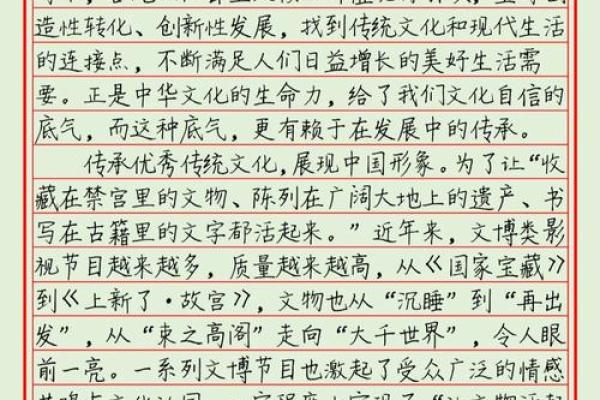 造性转化、创新性发展，找到传统文化和现代生活
的连接点，不断满足人们日益增长的美好生活需
要。正是中华文化的生命力，给了我们文化自信的
底气，而这种底气，更有赖于在发展中的传承。
传承优秀传统文化，展现中国形象。为了让“收
藏在禁宫里的文物、陈列在广阔大地上的遗产、书
写在古籍里的文字都活起来。”近年来，文博类影
视节目越来越多，质量越来越高，从《国家宝藏》
到《上新了·故宫》，文物也从“沉睡”到“再出
发”，从“束之高阁”走向“大千世界”，令人眼
前一亮。一系列文博节目也激起了受众广泛的情感